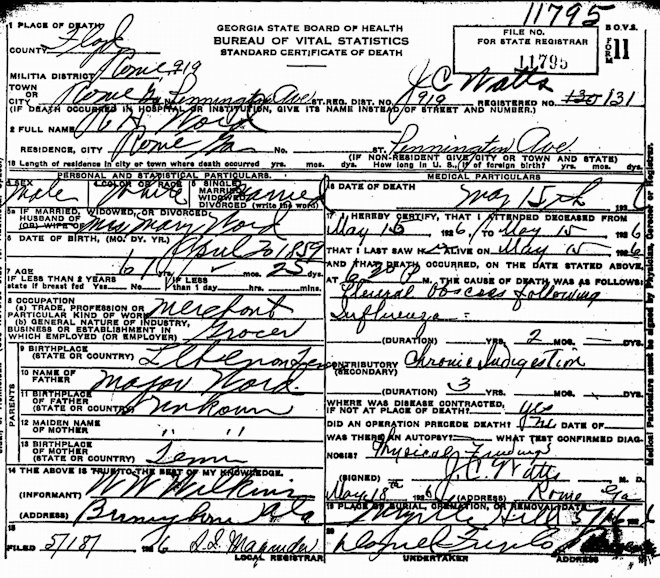 11795
GEORGIA STATE BOARD OF HEALTH
BUREAU OF VITAL STATISTICS
STANDARD CERTIFICATE OF DEATH
FILE NO.
FOR STATE REGISTRAR
11795
B.O.V.S.
FORM 11
1 PLACE OF DEATH
COUNTY Floyd
MILITIA DISTRICT Rome 919
J C Watts
TOWN OR CITY Rome Ga NO. Pennington Ave ST. REG. DIST. NO. 919 REGISTERED NO. 130 131
(IF DEATH OCCURRED IN HOSPITAL OR INSTITUTION, GIVE ITS NAME INSTEAD OF STREET AND NUMBER.)
2 FULL NAME Word
RESIDENCE, CITY Rome Ga NO. ST. Pennington Ave
(IF NON-RESIDENT GIVE CITY OR TOWN AND STATE)
18 Length of residence in city or town where death occurred yrs. mos. dys. How long in U. S., if of foreign birth? yrs. mos. dys.
PERSONAL AND STATISTICAL PARTICULARS.
3 SEX Male 4 COLOR OR RACE White 5 SINGLE MARRIED WIDOWED DIVORCED (write the word) Married
5a IF MARRIED, WIDOWED, OR DIVORCED
HUSBAND OF (OR) WIFE OF Mrs Mary Word
6 DATE OF BIRTH, (MO. DY. YR.) April 20 1859
7 AGE 25 dys.
IF LESS THAN 2 YEARS state if breast fed Yes No IF LESS than 1 day hrs. mins.
8 OCCUPATION
(a) TRADE, PROFESSION OR PARTICULAR KIND OF WORK Merchant
(b) GENERAL NATURE OF INDUSTRY, BUSINESS OR ESTABLISHMENT IN WHICH EMPLOYED (OR EMPLOYER) Grocer
PARENTS
9 BIRTHPLACE (STATE OR COUNTRY) Lebenon Tenn
10 NAME OF FATHER Major Word
11 BIRTHPLACE OF FATHER (STATE OR COUNTRY) Unknown
12 MAIDEN NAME OF MOTHER " "
13 BIRTHPLACE OF MOTHER (STATE OR COUNTRY) Tenn
14 THE ABOVE IS TRUE TO THE BEST OF MY KNOWLEDGE.
(INFORMANT) W W Wilkins
(ADDRESS) Birmingham Ala
15
FILED 5/18/ 1926 Magruder
LOCAL REGISTRAR
MEDICAL PARTICULARS
16 DATE OF DEATH May 15th 1926
17 I HEREBY CERTIFY, THAT I ATTENDED DECEASED FROM
May 15 1926, TO May 15 1926
THAT I LAST SAW H ALIVE ON May 15 1926
AND THAT DEATH OCCURRED, ON THE DATE STATED ABOVE,
AT M. THE CAUSE OF DEATH WAS AS FOLLOWS:
Abscess following
Influenza
(DURATION) YRS. 2 MOS. DYS.
CONTRIBUTORY (SECONDARY) Chronic Indigestion
(DURATION) 3 YRS. MOS. DYS.
WHERE WAS DISEASE CONTRACTED, IF NOT AT PLACE OF DEATH? Yes
DID AN OPERATION PRECEDE DEATH? DATE OF
WAS THERE AN AUTOPSY? WHAT TEST CONFIRMED DIAGNOSIS? Physical Findings
(SIGNED) J. C. Watts M. D.
May 18th 1926 (ADDRESS) Rome Ga
19 PLACE OF BURIAL, CREMATION, OR REMOVAL DATE
Myrtle Hill 5/16 1926
20 Daniel Furn Co
UNDERTAKER ADDRESS